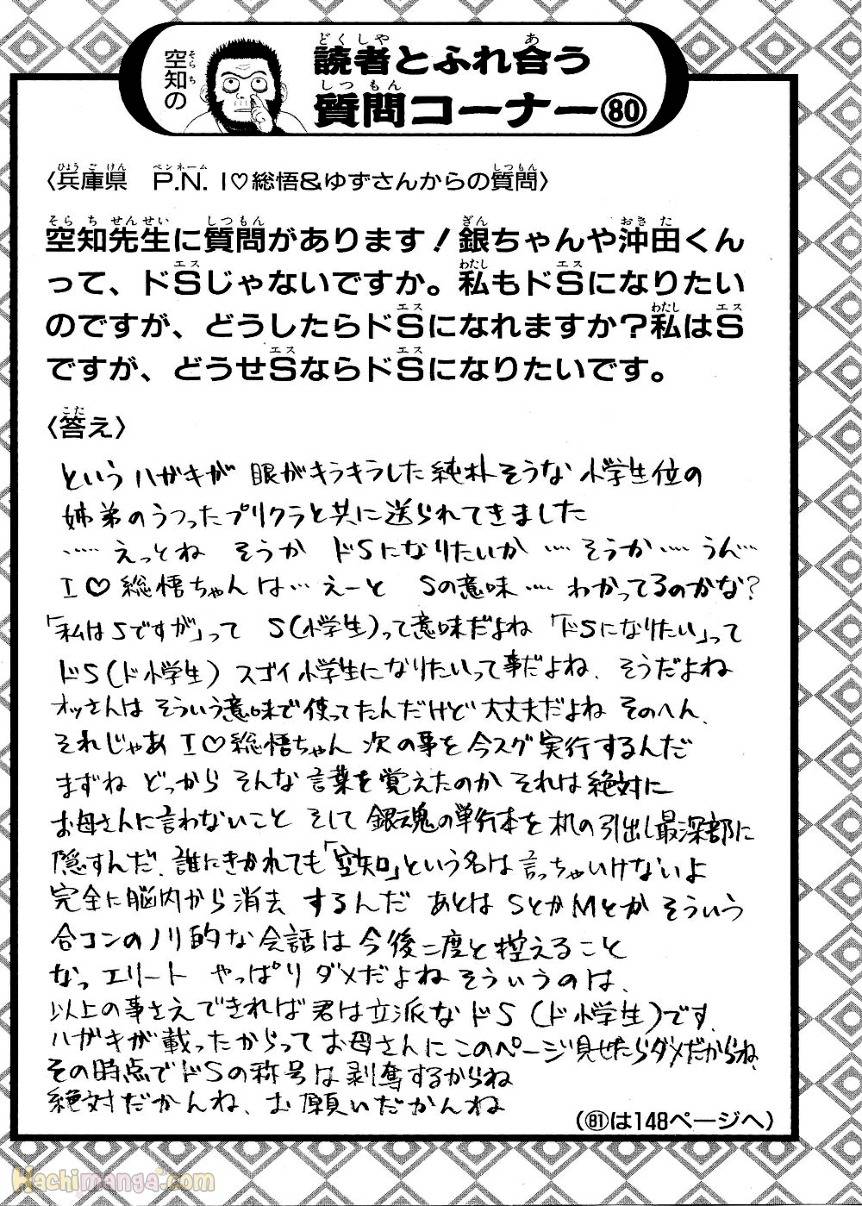 空知の
読者とふれ合う
質問コーナー80
〈兵庫県 P.N. I♡総悟&ゆずさんからの質問〉
空知先生に質問があります!銀ちゃんや沖田くん
って、ドSじゃないですか。私もドSになりたい
のですが、どうしたらドSになれますか?私はS
ですが、どうせSならドSになりたいです。
〈答え〉
というハガキが 眼がキラキラした純朴そうな 小学生位の
姉弟のうつったプリクラと共に送られてきました
……えっとね そうか ドSになりたいか…そうか…うん…
I♡総悟ちゃんは…えーと Sの意味…わかってるのかな?
「私はSですが」って S(小学生)って意味だよね「ドSになりたい」って
ドS(ド小学生) スゴイ小学生になりたいって事だよね、そうだよね
オッさんは そういう意味で使ってたんだけど 大丈夫だよね そのへん、
それじゃあ I♡総悟ちゃん 次の事を今スグ実行するんだ
まずね どっから そんな言葉を覚えたのか それは絶対に
お母さんに言わないこと そして 銀魂の単行本を机の引出し最深部に
隠すんだ、誰にきかれても「空知」という名は言っちゃいけないよ
完全に脳内から消去 するんだ あとは SとかMとか そういう
合コンのノリ的な会話は今後二度と控えること
なっ エリート やっぱりダメだよね そういうのは、
以上の事さえできれば君は立派なドS(ド小学生)です、
ハガキが載ったからってお母さんにこのページ見せたらダメだからね、
その時点でドSの称号は剥奪するからね
絶対だかんね、お願いだかんね
(81は148ページへ)
Hachimanga.com